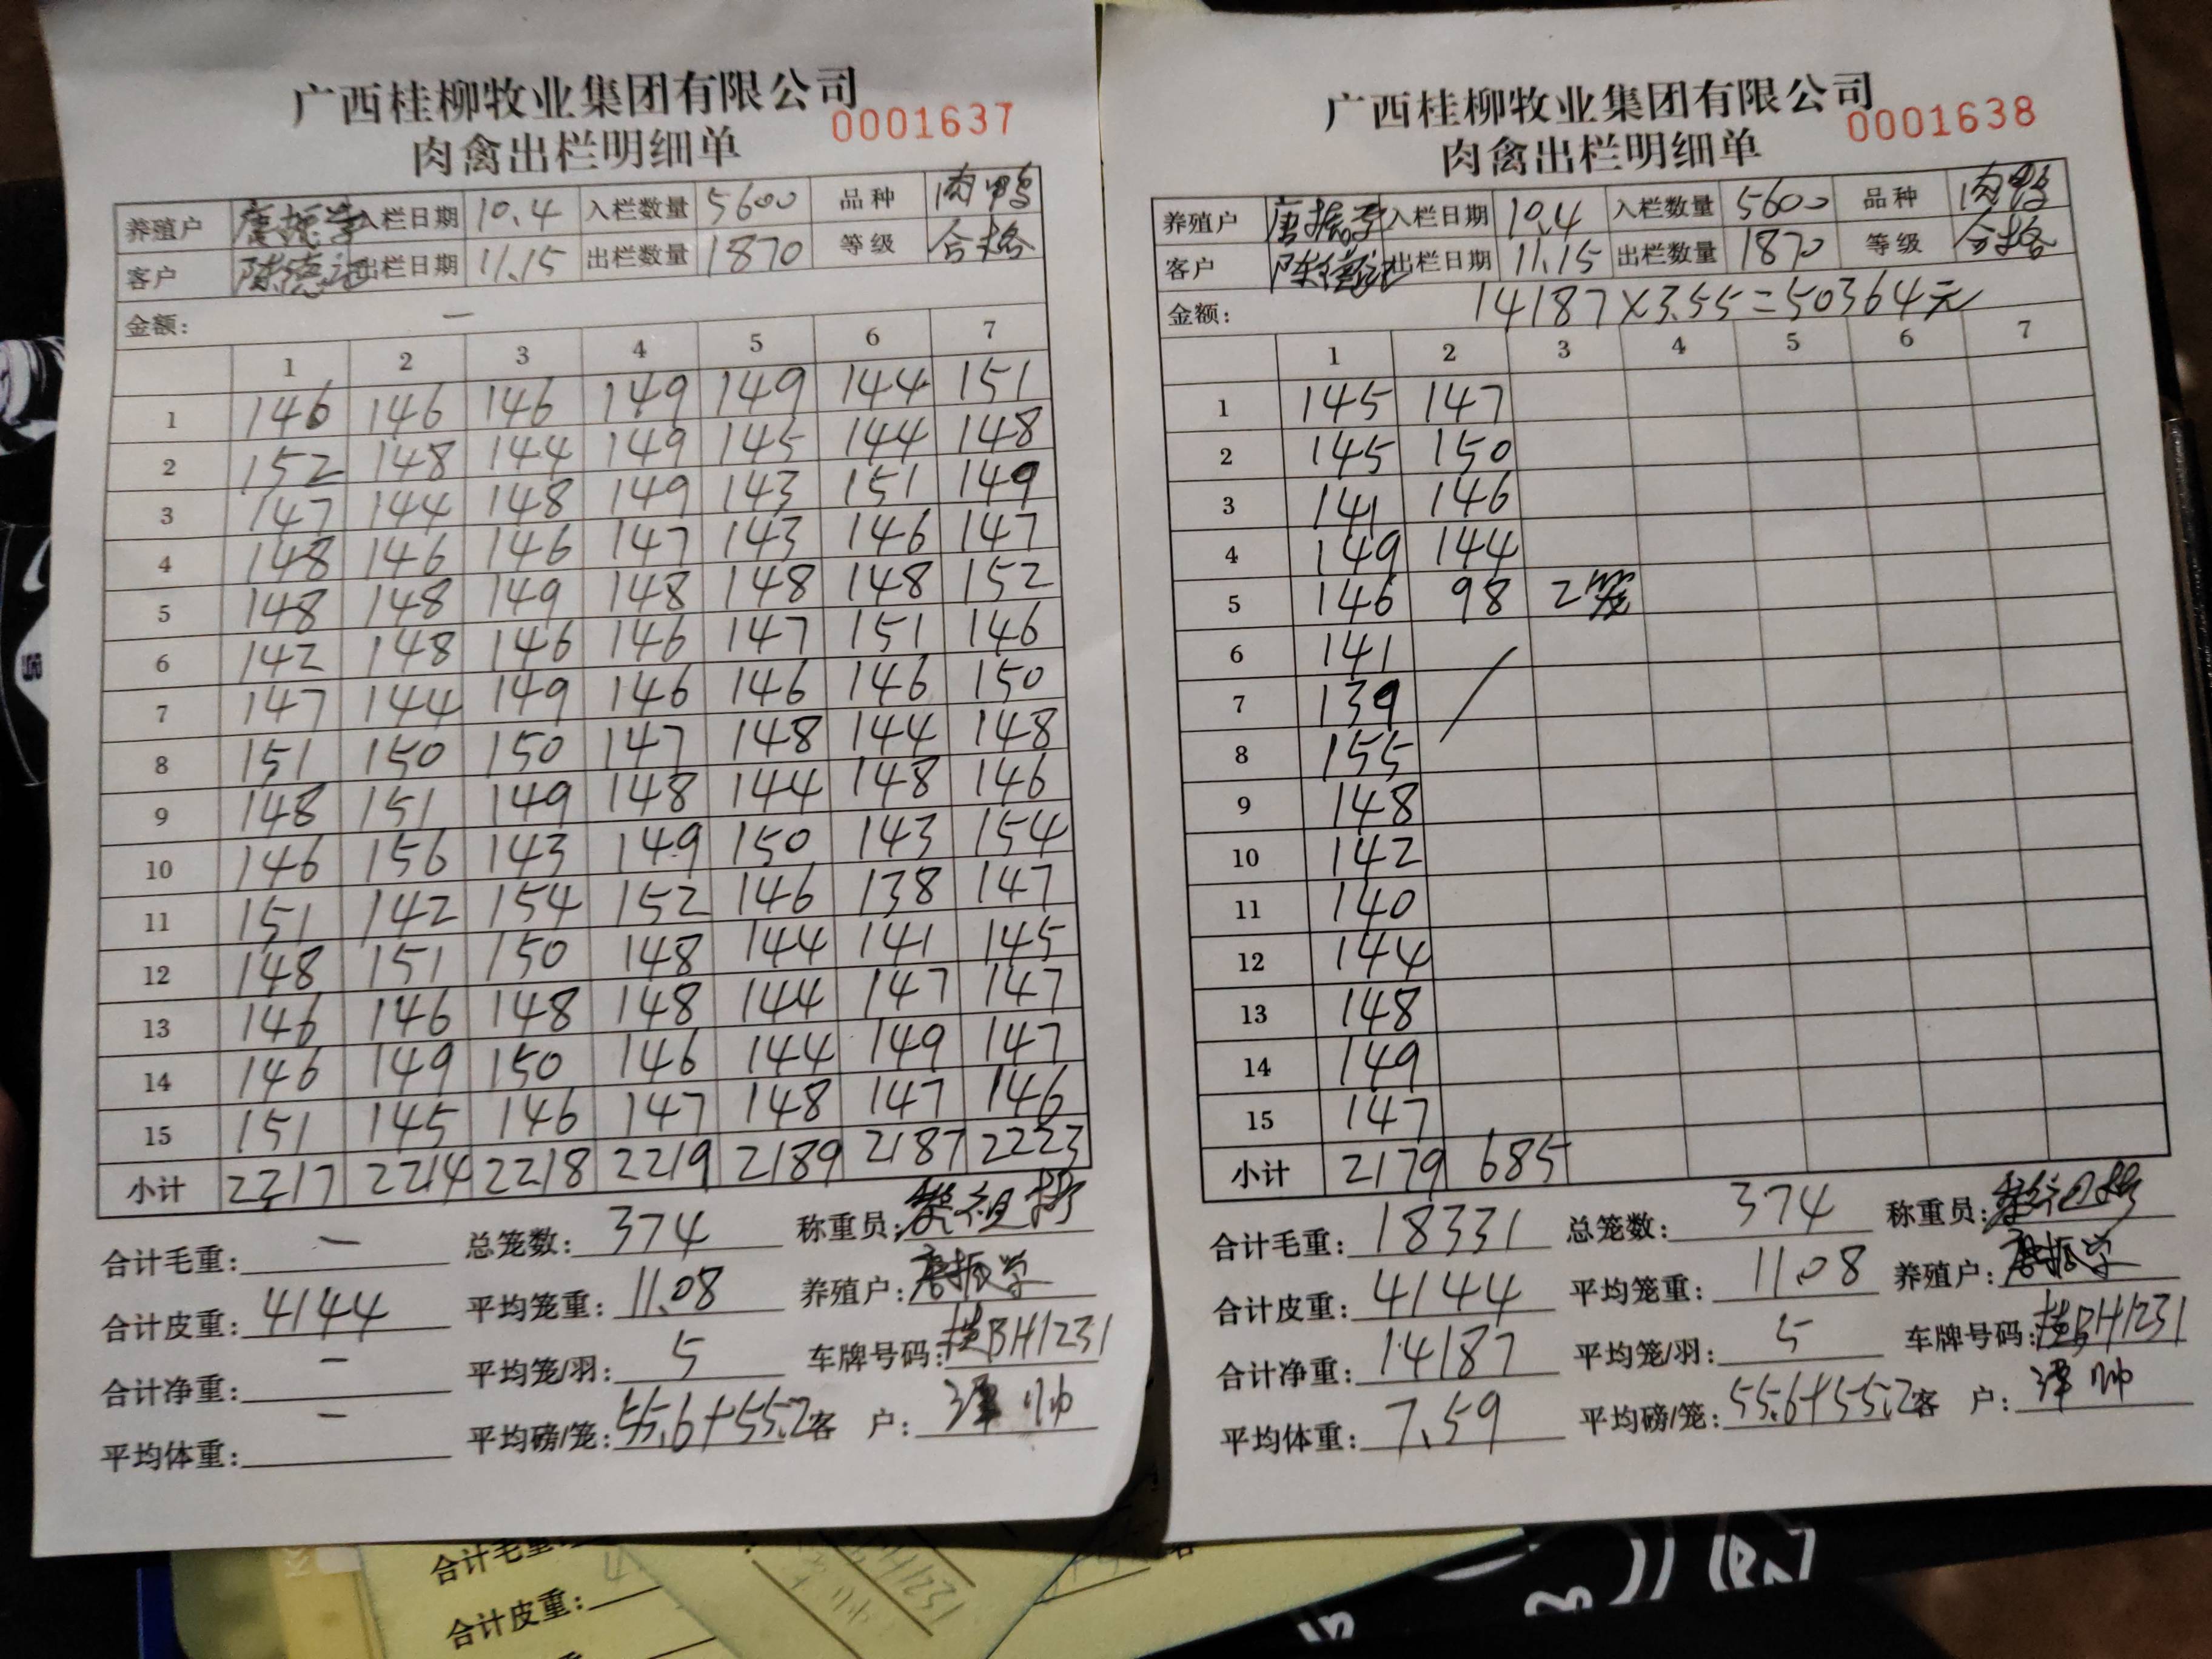 广西桂柳牧业集团有限公司
肉禽出栏明细单
0001637
养殖户 唐振学 入栏日期 10.4 入栏数量 5600 品种 肉鸭
客户 陈德 出栏日期 11.15 出栏数量 1870 等级 合格
金额: —
1 2 3 4 5 6 7
1 146 146 146 149 149 144 151
2 152 148 144 149 145 144 148
3 147 144 148 149 143 151 149
4 148 146 146 147 143 146 147
5 148 148 149 148 148 148 152
6 142 148 146 146 147 151 146
7 147 144 149 146 146 146 150
8 151 150 150 147 148 144 148
9 148 151 149 148 144 148 146
10 146 156 143 149 150 143 154
11 151 142 154 152 146 138 147
12 148 151 150 148 144 141 145
13 146 146 148 148 144 147 147
14 146 149 150 146 144 149 147
15 151 145 146 147 148 147 146
小计 2217 2214 2218 2219 2189 2187 2223
合计毛重: — 总笼数: 374 称重员:
合计皮重: 4144 平均笼重: 11.08 养殖户: 唐振学
合计净重: — 平均笼/羽: 5 车牌号码: BH1231
平均体重: — 平均磅/笼: 55.6+55.2 客 户:
广西桂柳牧业集团有限公司
肉禽出栏明细单
0001638
养殖户 唐振学 入栏日期 10.4 入栏数量 5600 品种 肉鸭
客户 陈德 出栏日期 11.15 出栏数量 1870 等级 合格
金额: 14187×3.55=50364元
1 2 3 4 5 6 7
1 145 147
2 145 150
3 141 146
4 149 144
5 146 98 2笼
6 141
7 139
8 155
9 148
10 142
11 140
12 144
13 148
14 149
15 147
小计 2179 685
合计毛重: 18331 总笼数: 374 称重员:
合计皮重: 4144 平均笼重: 11.08 养殖户: 唐振学
合计净重: 14187 平均笼/羽: 5 车牌号码: BH1231
平均体重: 7.59 平均磅/笼: 55.6+55.2 客 户:
合计毛重:
合计皮重: